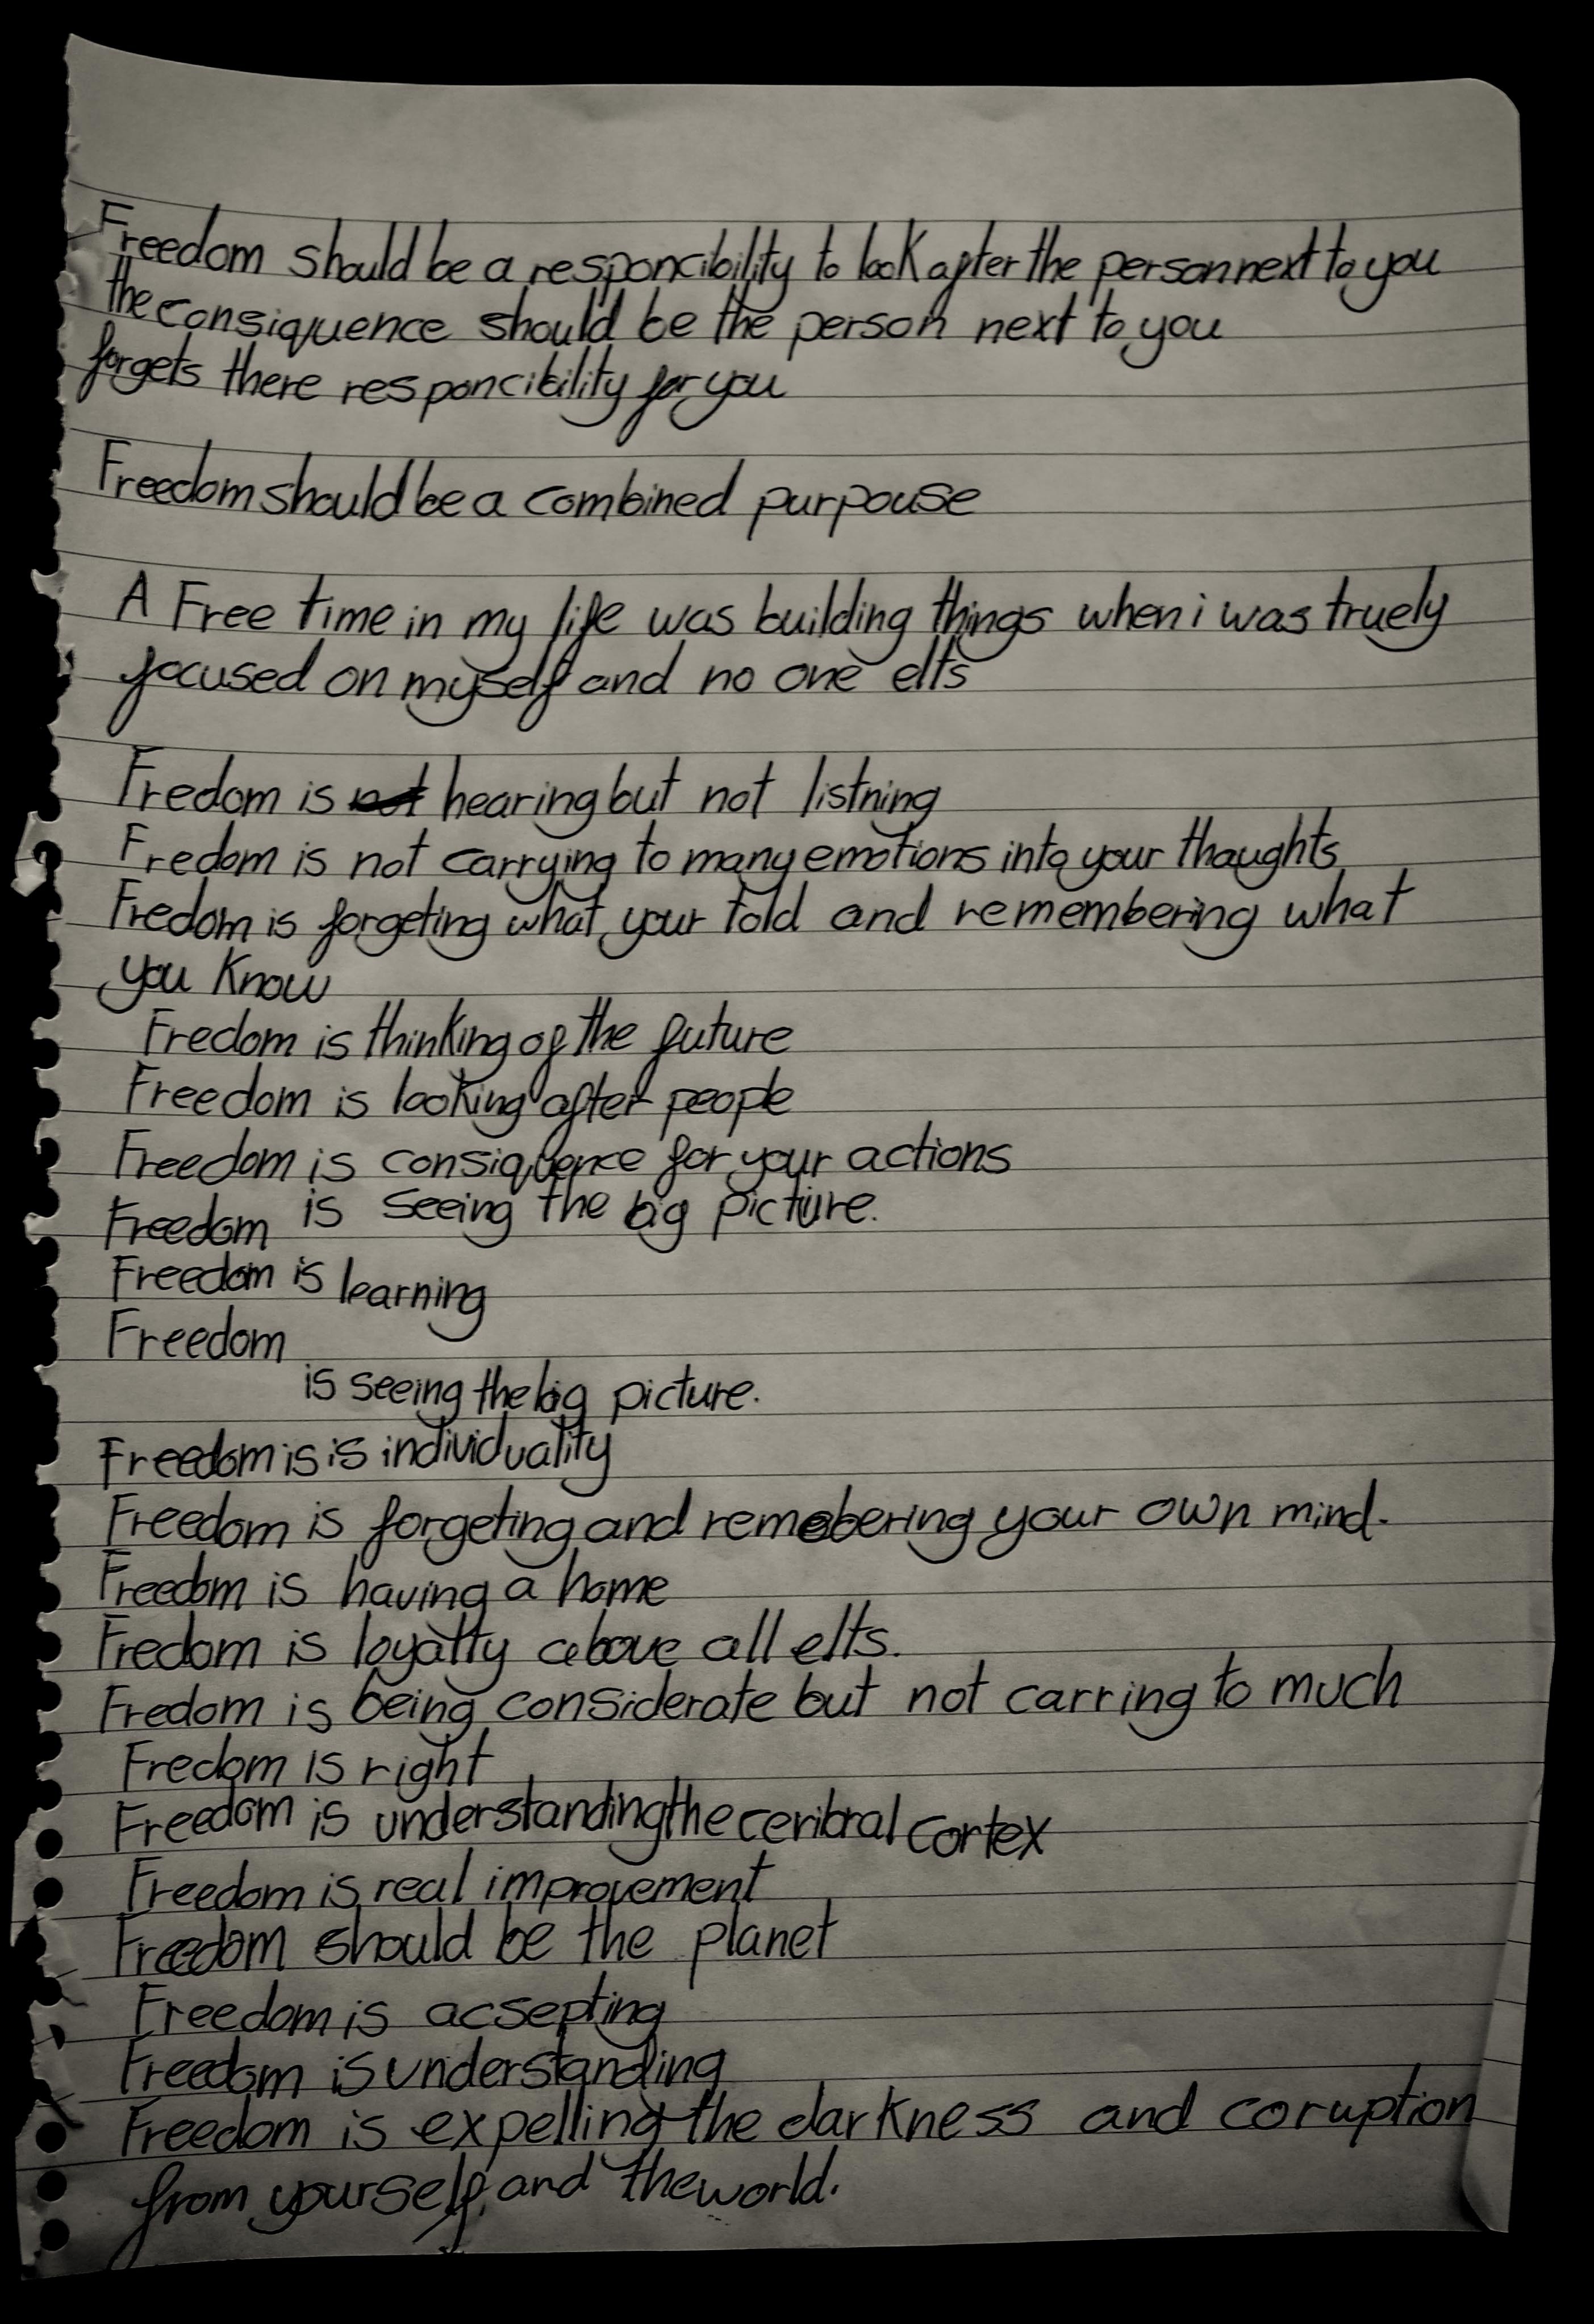 Freedom should be a responcibility to look after the person next to you
the consiquence should be the person next to you
forgets there responcibility for you
Freedom should be a combined purpouse
A Free time in my life was building things when i was truely
focused on myself and no one elts
Fredom is not hearing but not listning
Fredom is not carrying to many emotions into your thoughts
Fredom is forgeting what your told and remembering what
you know
Fredom is thinking of the future
Freedom is looking after people
Freedom is consiquence for your actions
Freedom is seeing the big picture.
Freedom is learning
Freedom
is seeing the big picture.
Freedom is is individuality
Freedom is forgeting and remebering your own mind.
Freedom is having a home
Fredom is loyalty above all elts.
Fredom is being considerate but not carring to much
Fredom is right
Freedom is understanding the ceribral cortex
Freedom is real improvement
Freedom should be the planet
Freedom is acsepting
Freedom is understanding
Freedom is expelling the darkness and coruption
from yourself, and the world.